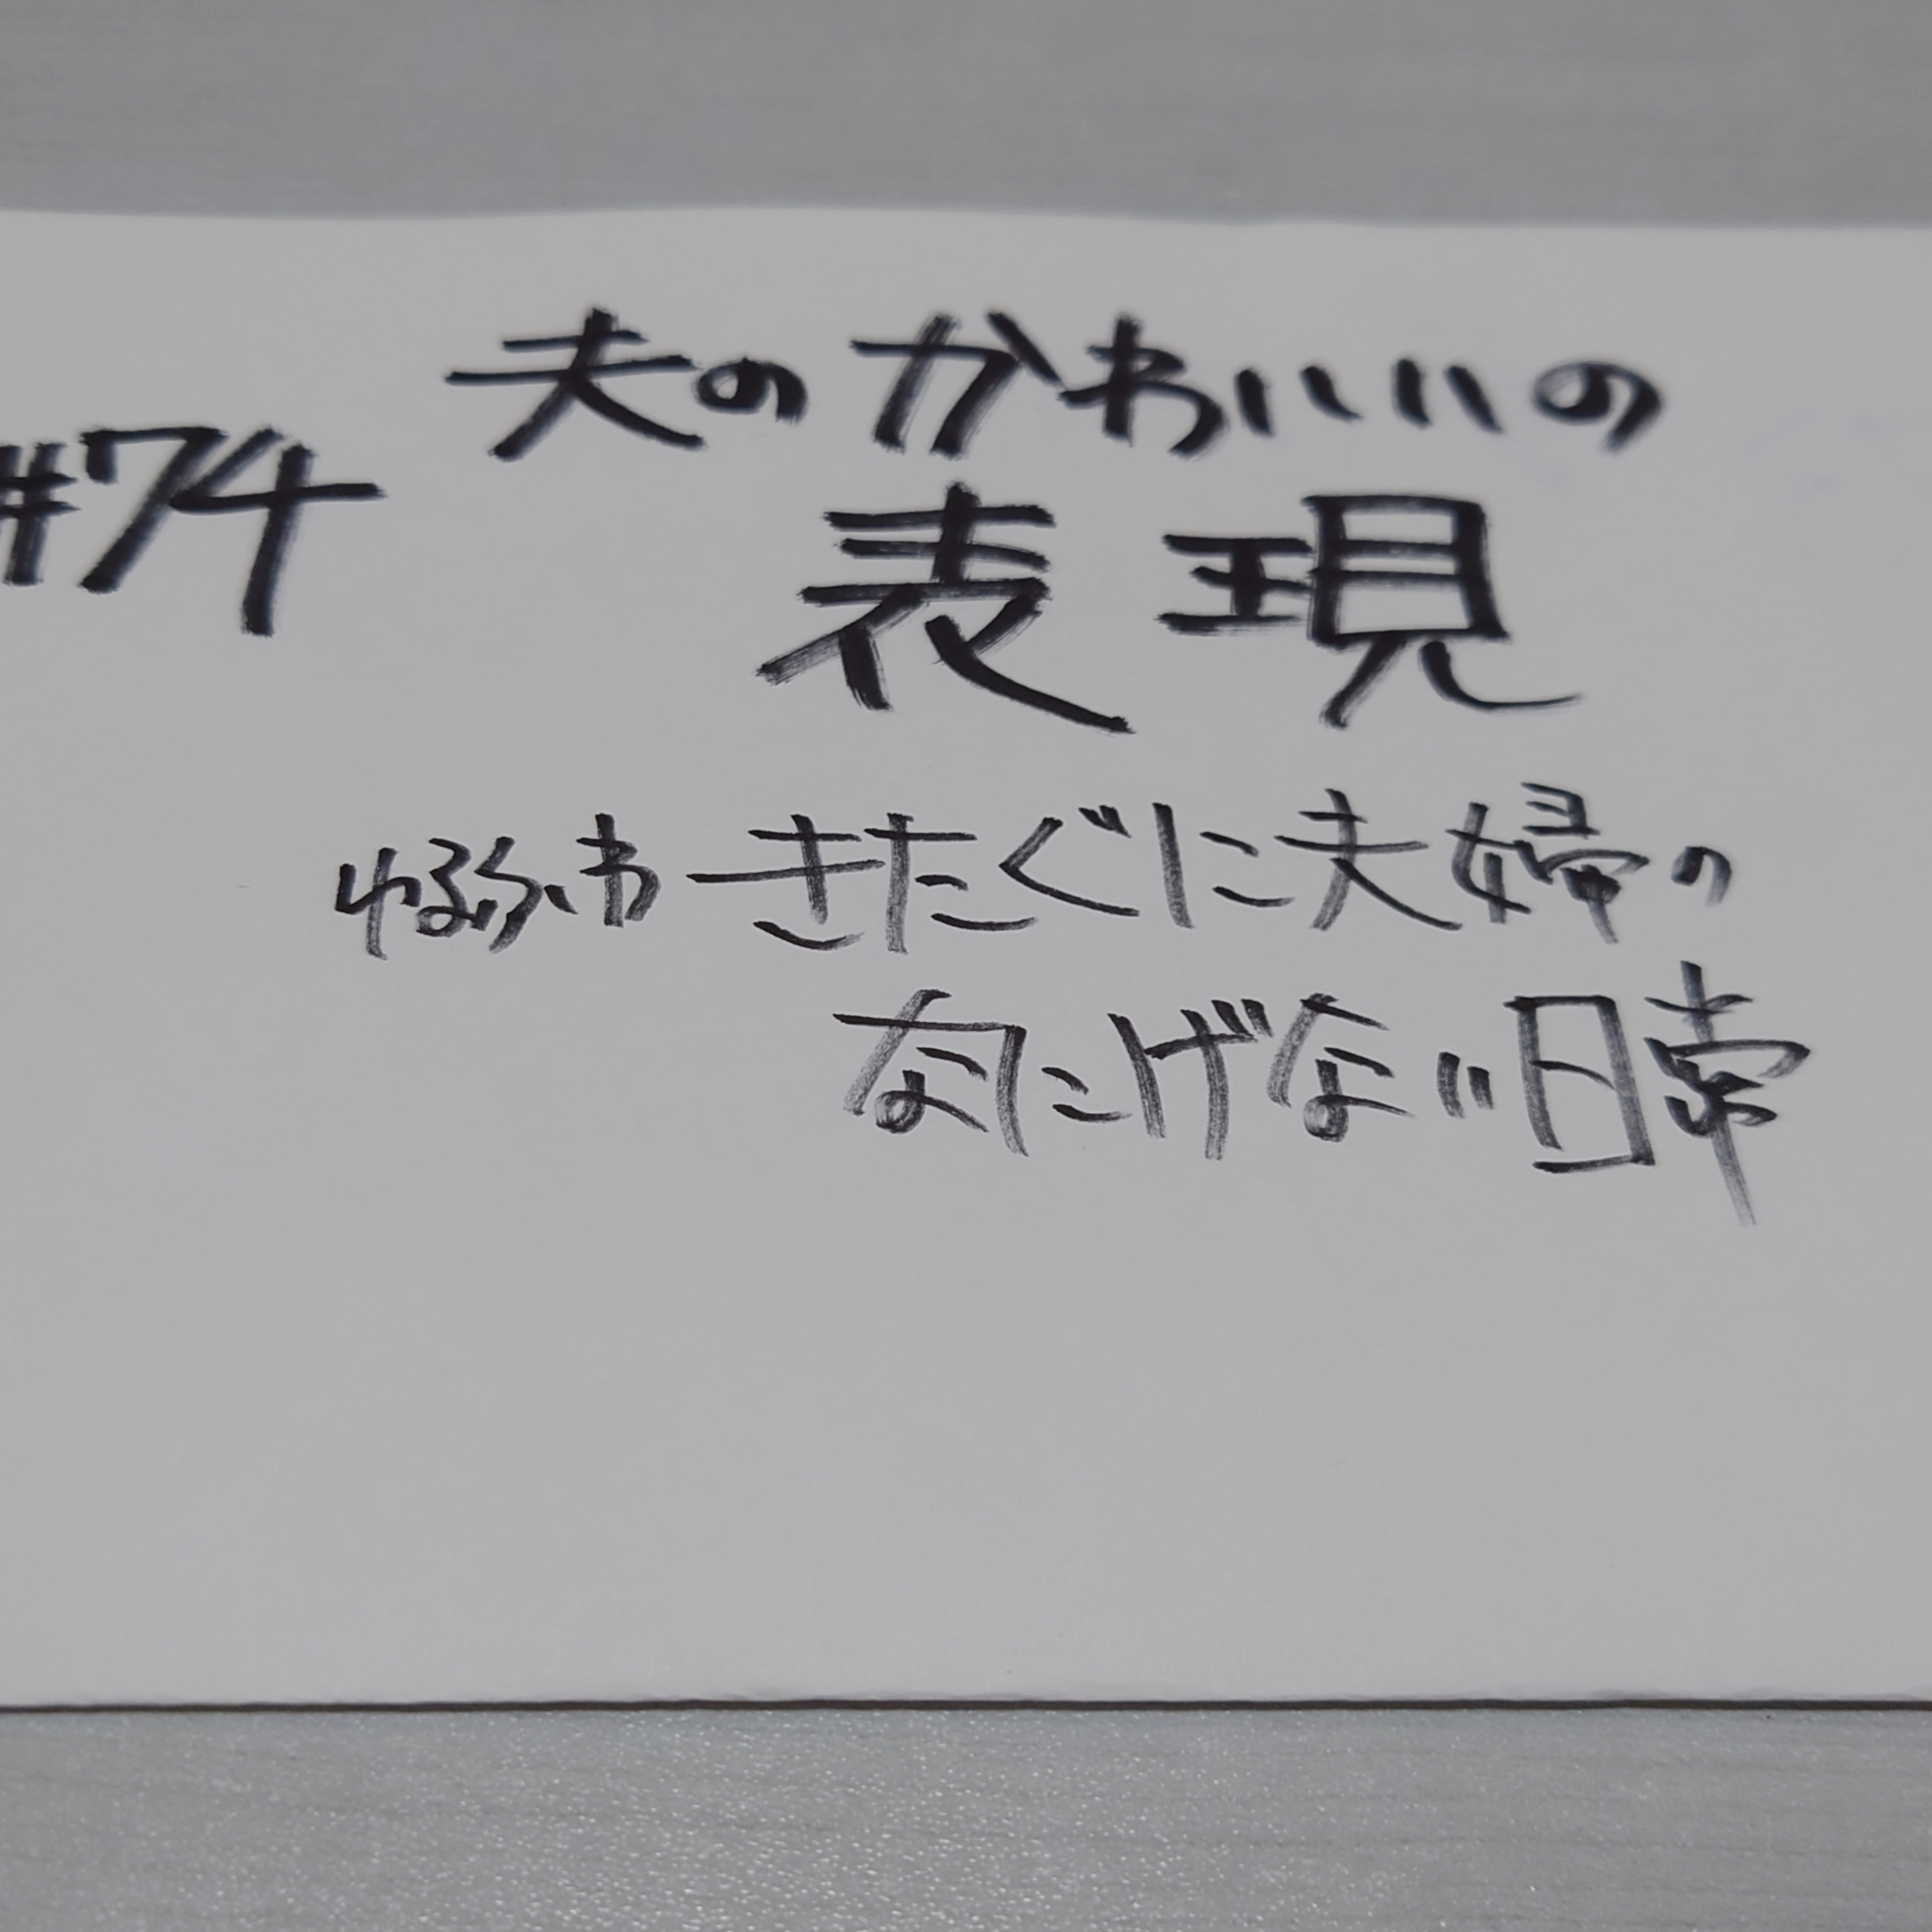 #74
夫のかわいいの
表現
ゆるふわきたぐに夫婦の
なにげない日常